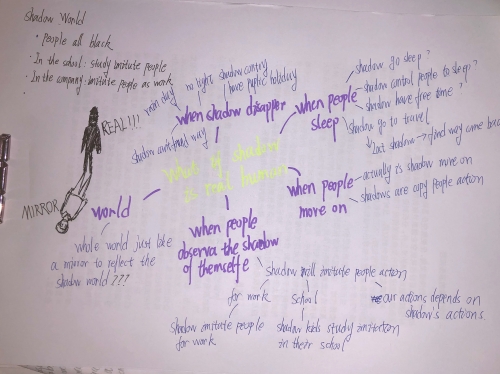 shadow World
• People all black
• In the school: study imitate people
• In the company: imitate people as work
•
REAL!!!
MIRROR
What if shadow
is real human
when shadow disapper
rain day
no light
shadow country
have public holiday
when people
sleep
shadow go sleep?
shadow control people to sleep?
shadow have free time?
shadow go to travel
lost shadow → find way come back
when people
move on
actually is shadow move on
shadows are copy people action
when people
observe the shadow
of themselfe
shadow will imitate people action
for work
shadow imitate people
for work
school
shadow kids study imitation
in their school
our actions depends on
shadow's actions
world
whole world just like
a mirror to reflect the
shadow world ???